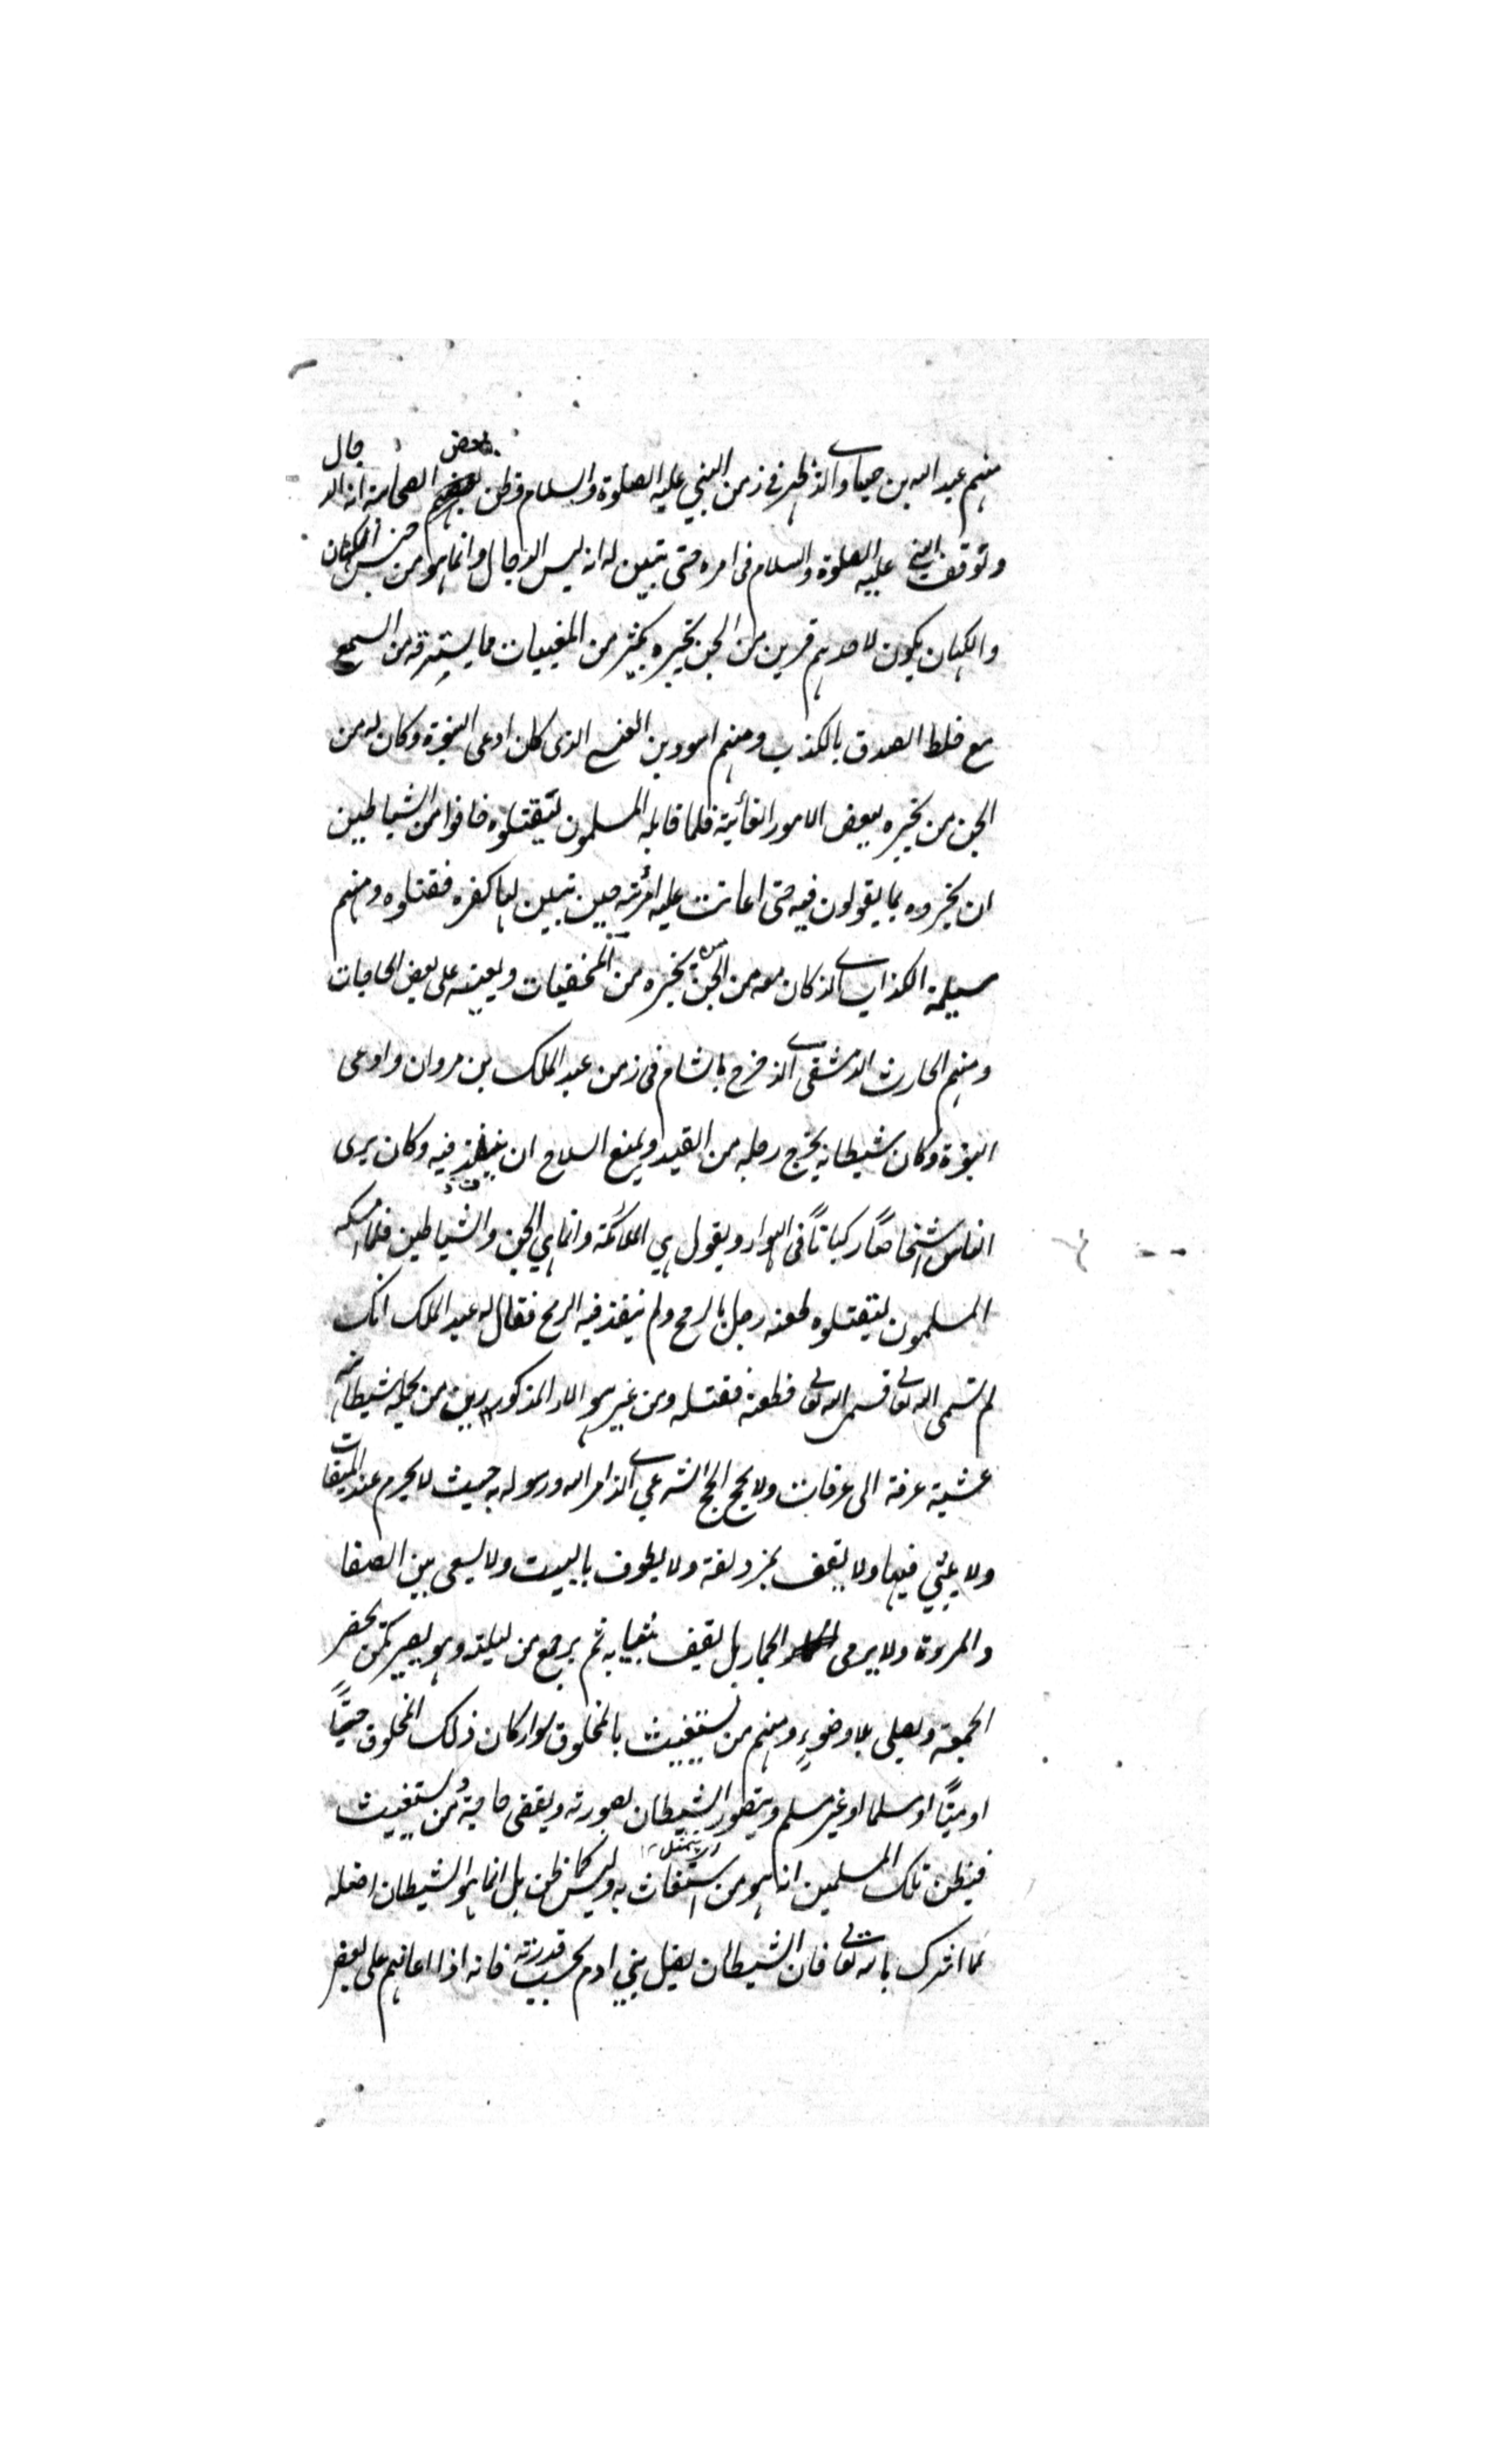 منهم عبد الله بن صياد الذي ظهر في زمن النبي عليه الصلوة والسلام وظن بعض الصحابة انه الدجال
وتوقف النبي عليه الصلوة والسلام في امره حتى تبين له انه ليس الدجال وانما هو من جنس الكهان
والكهان يكون لاحدهم قرين من الجن يخبره بكثير من المغيبات مما يسترقه من السمع
مع خلط الصدق بالكذب ومنهم اسود بن العنسي الذي كان ادعى النبوة وكان له من
الجن من يخبره ببعض الامور الغائبة فلما قابله المسلمون ليقتلوه خافوا من الشياطين
ان يخبروه بما يقولون فيه حتى اعانت عليه امرئته حين تبين لها كفره فقتلوه ومنهم
مسيلمة الكذاب الذي كان معه من الجن من يخبره من المخفيات ويعينه على بعض الحاجات
ومنهم الحارث الدمشقي الذي خرج بالشام في زمن عبد الملك بن مروان وادعى
النبوة وكان شيطانه يخرج رجله من القيد ويمنع السلاح ان ينفذ فيه وكان يرى
الناس اشخاصًا ركباتًا في الهواء ويقول هي الملائكة وانما هي الجن والشياطين فلما امسكه
المسلمون ليقتلوه طعنه رجل بالرمح ولم ينفذ فيه الرمح فقال له عبد الملك انك
لم تسمى الله تعالى فسمى الله تعالى فطعنه فقتله ومن غير هؤلاء المذكورين من يحمله شيطانه
عشية عرفة الى عرفات ولا يحج الحج الشرعي الذي امر الله ورسوله به حيث لا يحرم عند الميقات
ولا يلبي فيها ولا يقف بمزدلفة ولا يطوف بالبيت ولا يسعى بين الصفا
والمروة ولا يرمى الجمار بل يقف بثيابه ثم يرجع من ليلته وهو يصير كمن يحضر
الجمعة ويصلي بلا وضوءٍ ومنهم من يستغيث بالمخلوق سواء كان ذلك المخلوق حيًّا
او ميتًا او مسلما او غير مسلم ويتصور الشيطان بصورته ويقضى حاجة من يستغيث
فيظن تلك المسلمين انما هو من استغاث به وليس كما ظن بل انما هو الشيطان اضله
لما اشرك بالله تعالى فان الشيطان يضل بني ادم بحسب قدرته فانه اذا اعانهم على بعض